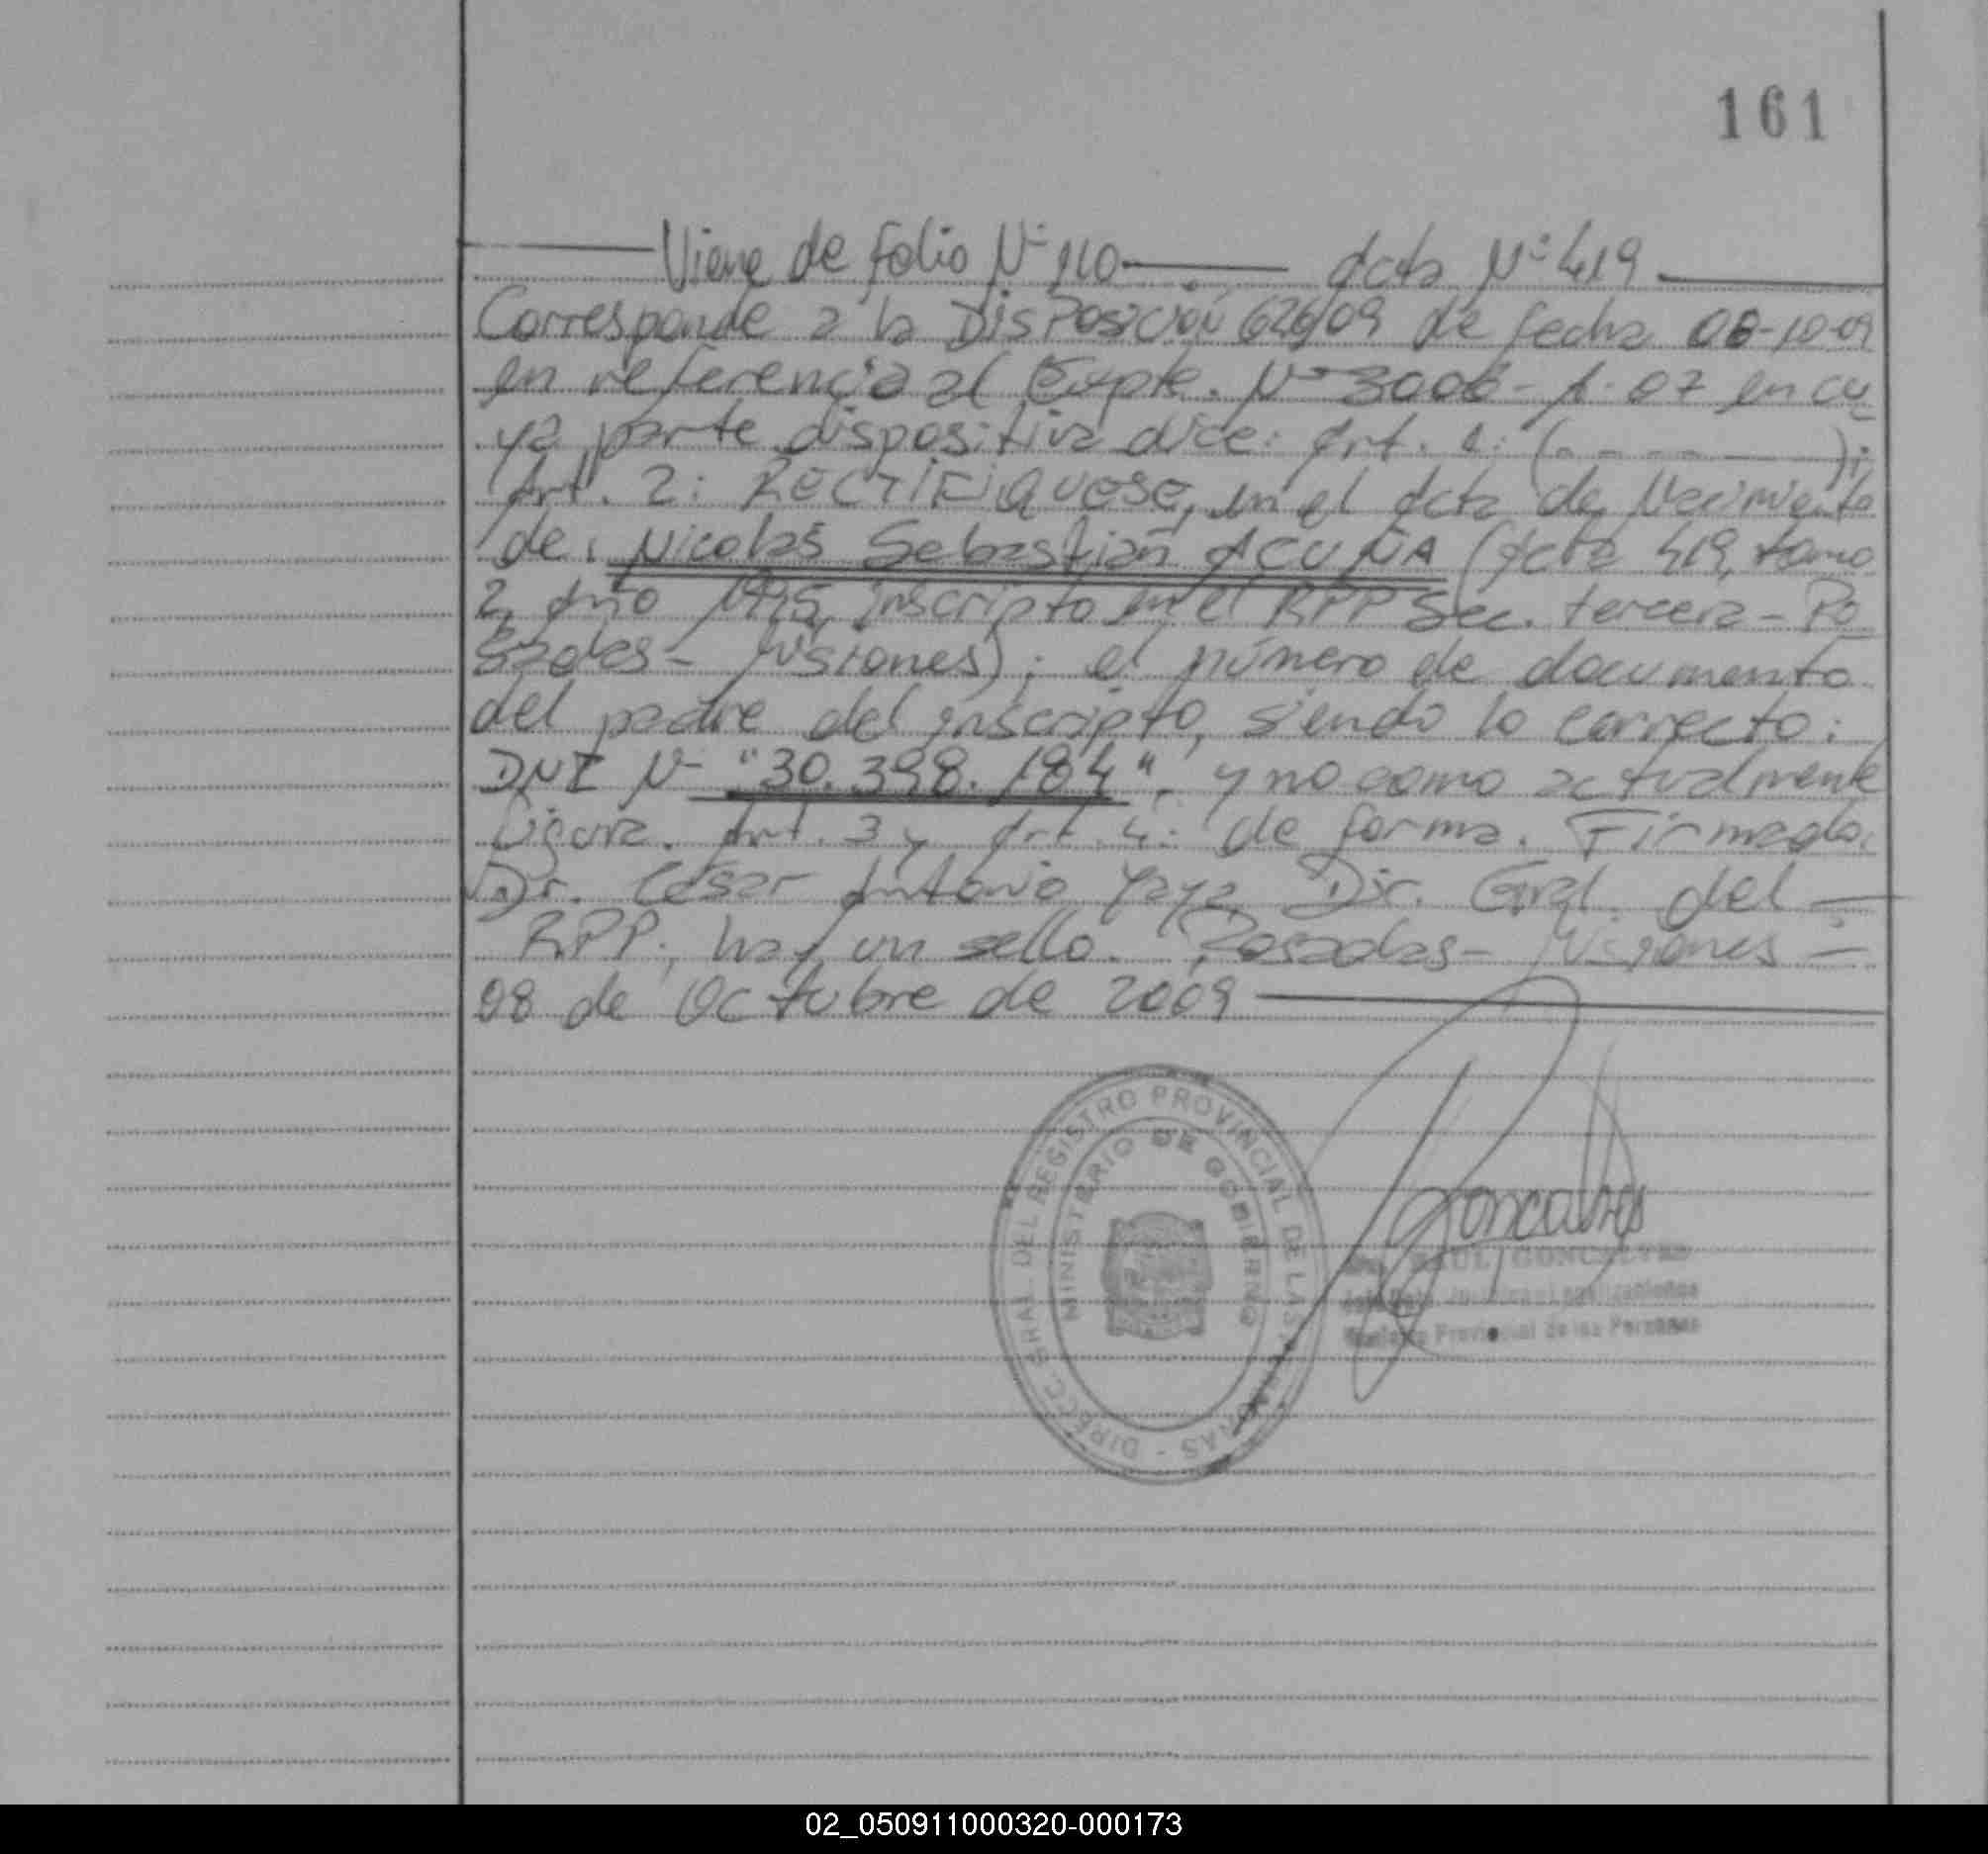 161
Viene de folio Nº 110 Acta Nº 419
Corresponde a la Disposición 626/09 de fecha 08-10-09
en referencia al Expte. Nº 3006-A-07 en cu
ya parte dispositiva dice: Art. 1: (- - - - );
Art. 2: RECTIFIQUESE, en el Acta de Nacimiento
de: Nicolas Sebastian ACUÑA (Acta 419, tomo
2, Año 1995, inscripto en el RPP Sec. tercera - Po
sadas - Misiones); el número de documento
del padre del inscripto, siendo lo correcto:
DNI Nº "30.398.184", y no como actualmente
figura. Art. 3 y Art. 4: de forma. Firmado:
Dr. César Antonio Yaya Dir. Gral. del
RPP; hay un sello. Posadas - Misiones -
08 de Octubre de 2009
DIRECC. GRAL. DEL REGISTRO PROVINCIAL DE LAS PERSONAS -
MINISTERIO DE GOBIERNO
Goncalves
RAUL GONCALVES
Provincial de las Personas
02_050911000320-000173